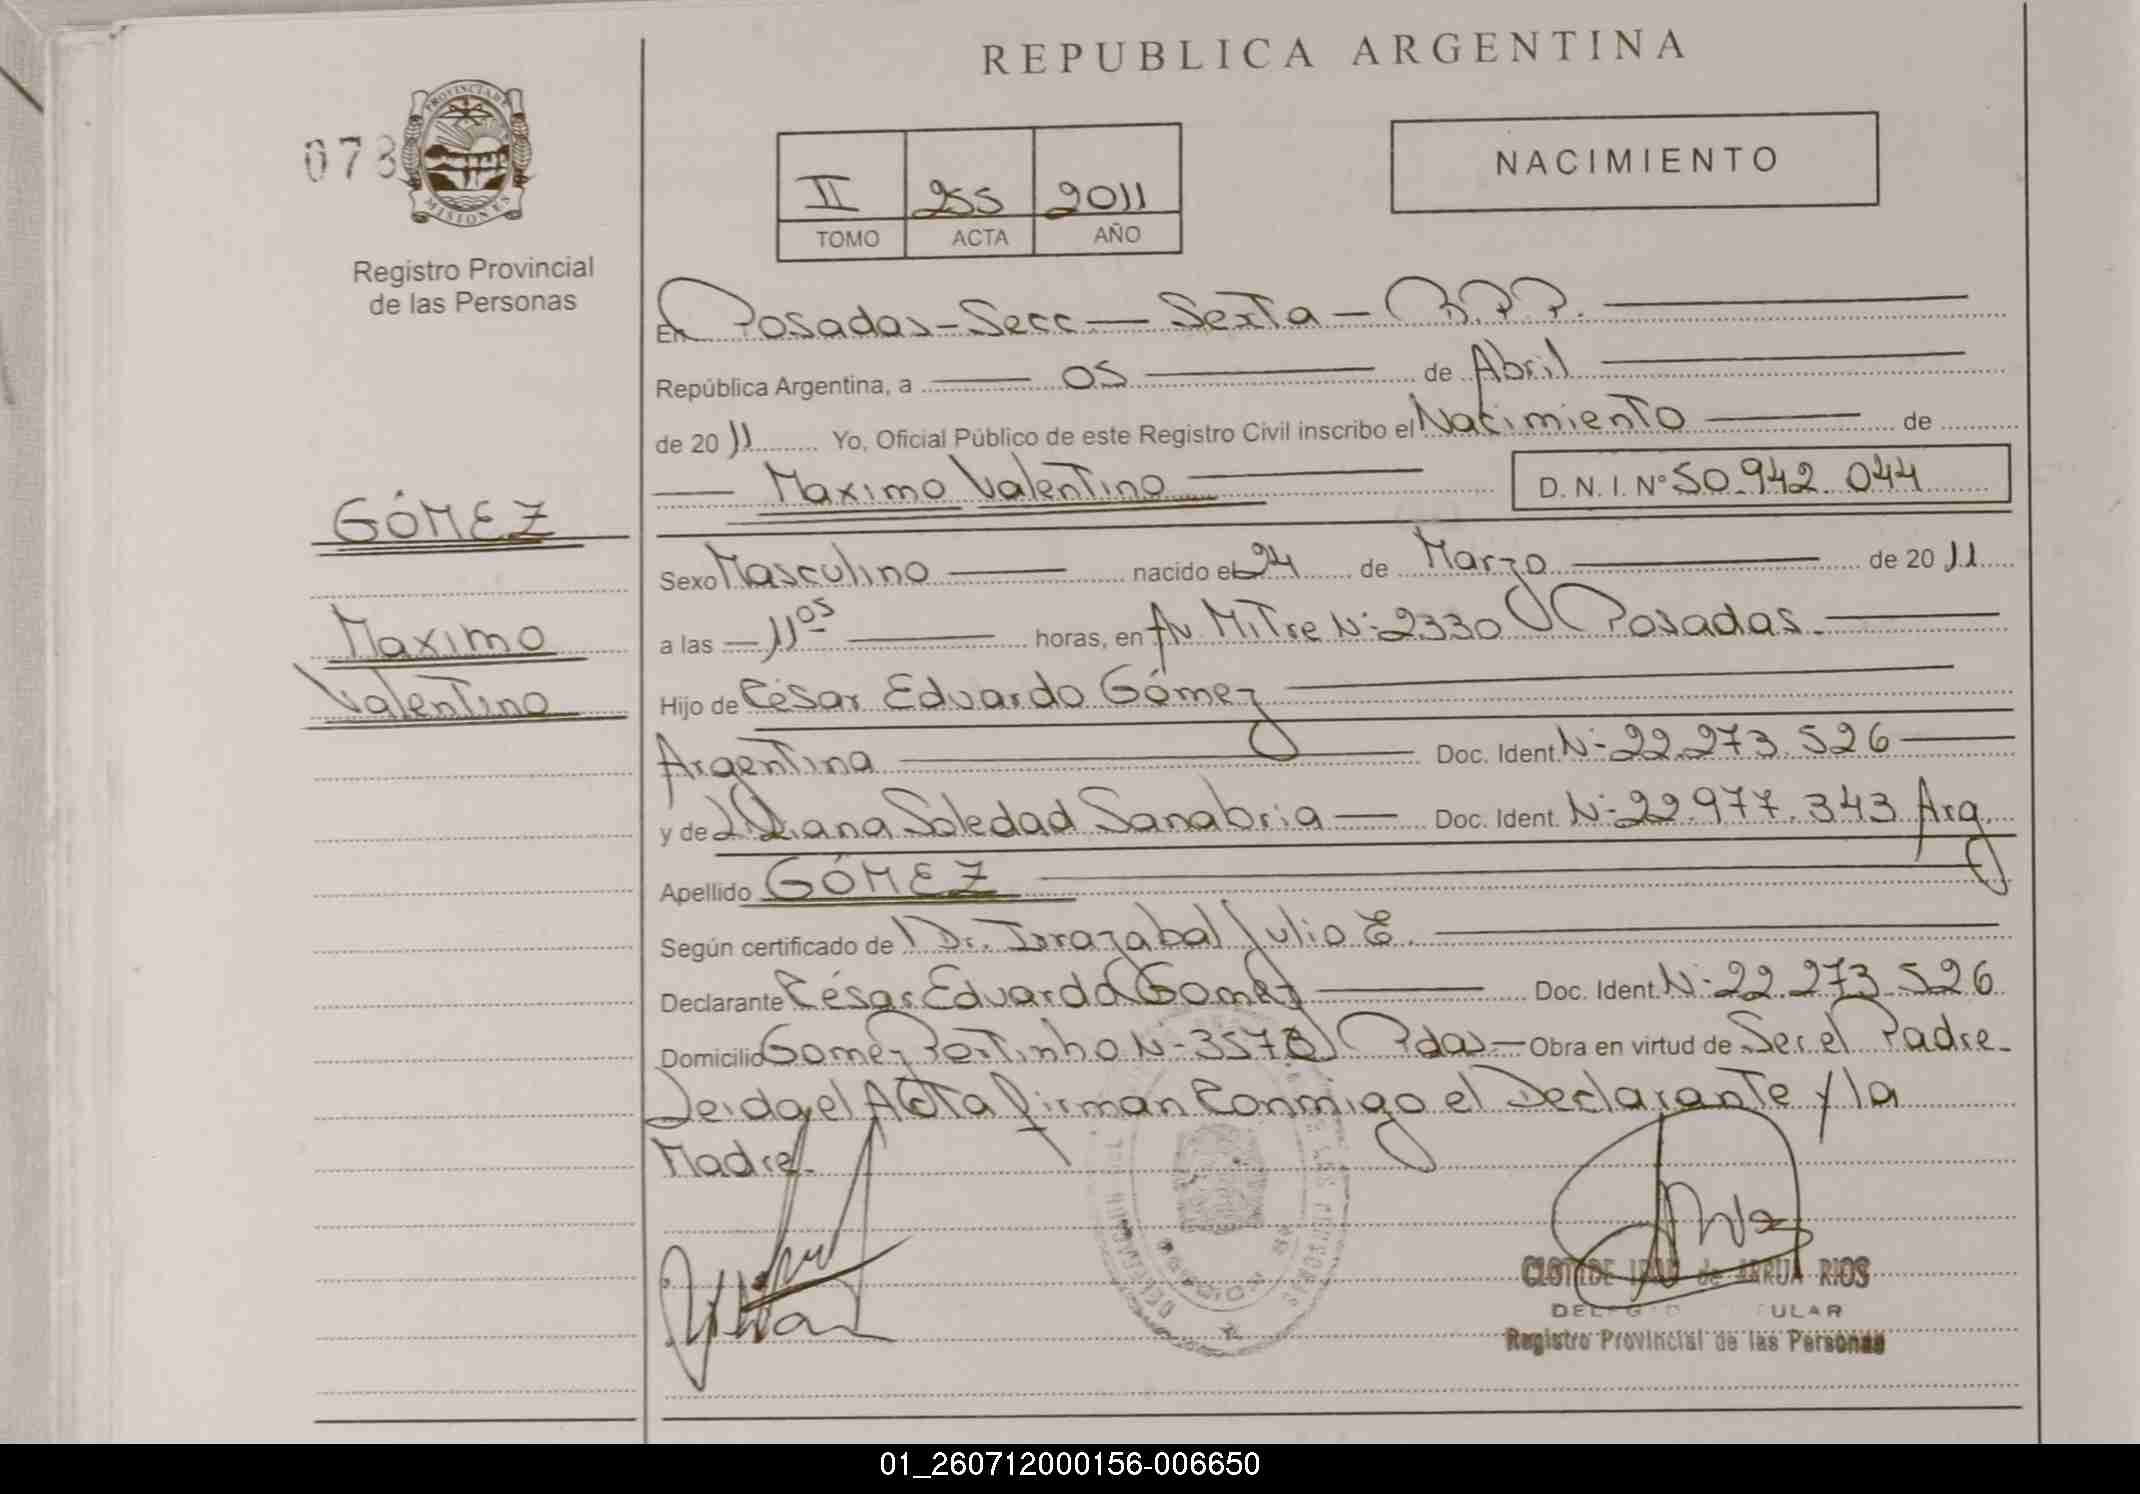 REPUBLICA ARGENTINA
073
PROVINCIA DE
MISIONES
Registro Provincial
de las Personas
II 255 2011
TOMO ACTA AÑO
NACIMIENTO
En Posadas-Secc-Sexta- B.P.P.
República Argentina, a 05 de Abril
de 2011 Yo, Oficial Público de este Registro Civil inscribo el Nacimiento de
Maximo Valentino D.N.I. Nº 50.942.044
GÓMEZ
Maximo
Valentino
Sexo Masculino nacido el 24 de Marzo de 2011
a las 11 05 horas, en Av Mitre N: 2330 Posadas.
Hijo de César Eduardo Gómez
Argentina Doc. Ident. N: 22.273.526
y de Liliana Soledad Sanabria Doc. Ident. N: 22.977.343 Arg.
Apellido GÓMEZ
Según certificado de Dr. Irrazabal Julio E.
Declarante César Eduardo Gomez Doc. Ident. N: 22.273.526
Domicilio Gomez Portinho N- Pdas- Obra en virtud de Ser el Padre-
Leida el Acta firman Conmigo el Declarante y la
Madre.
CLOTILDE de JARRUA RIOS
Registro Provincial de las Personas
01_260712000156-006650